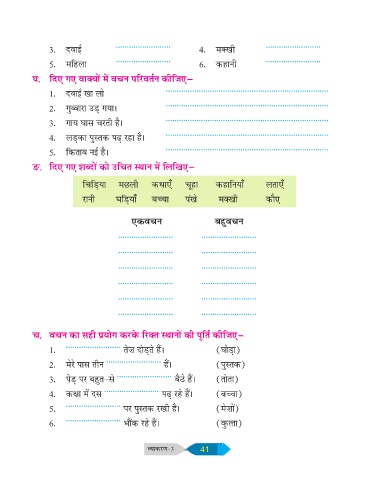 3. दवाई ........................ 4. मक्खी ........................
5. महिला ........................ 6. कहानी ........................
घ. दिए गए वाक्यों में वचन परिवर्तन कीजिए–
1. दवाई खा लो ........................
2. गुब्बारा उड़ गया। ........................
3. गाय घास चरती है। ........................
4. लड़का पुस्तक पढ़ रहा है। ........................
5. किताब नई है। ........................
ङ. दिए गए शब्दों को उचित स्थान में लिखिए–
चिड़िया मछली कथाएँ चूहा कहानियाँ लताएँ
रानी घड़ियाँ बच्चा पंखे मक्खी कौए
एकवचन बहुवचन
........................ ........................
........................ ........................
........................ ........................
........................ ........................
........................ ........................
........................ ........................
च. वचन का सही प्रयोग करके रिक्त स्थानों की पूर्ति कीजिए–
1. ........................ तेज दौड़ते हैं। (घोड़ा)
2. मेरे पास तीन ........................ हैं। (पुस्तक)
3. पेड़ पर बहुत-से ........................ बैठे हैं। (तोता)
4. कक्षा में दस ........................ पढ़ रहे हैं। (बच्चा)
5. ........................ पर पुस्तक रखी है। (मेजों)
6. ........................ भौंक रहे हैं। (कुत्ता)
व्याकरण-3 41